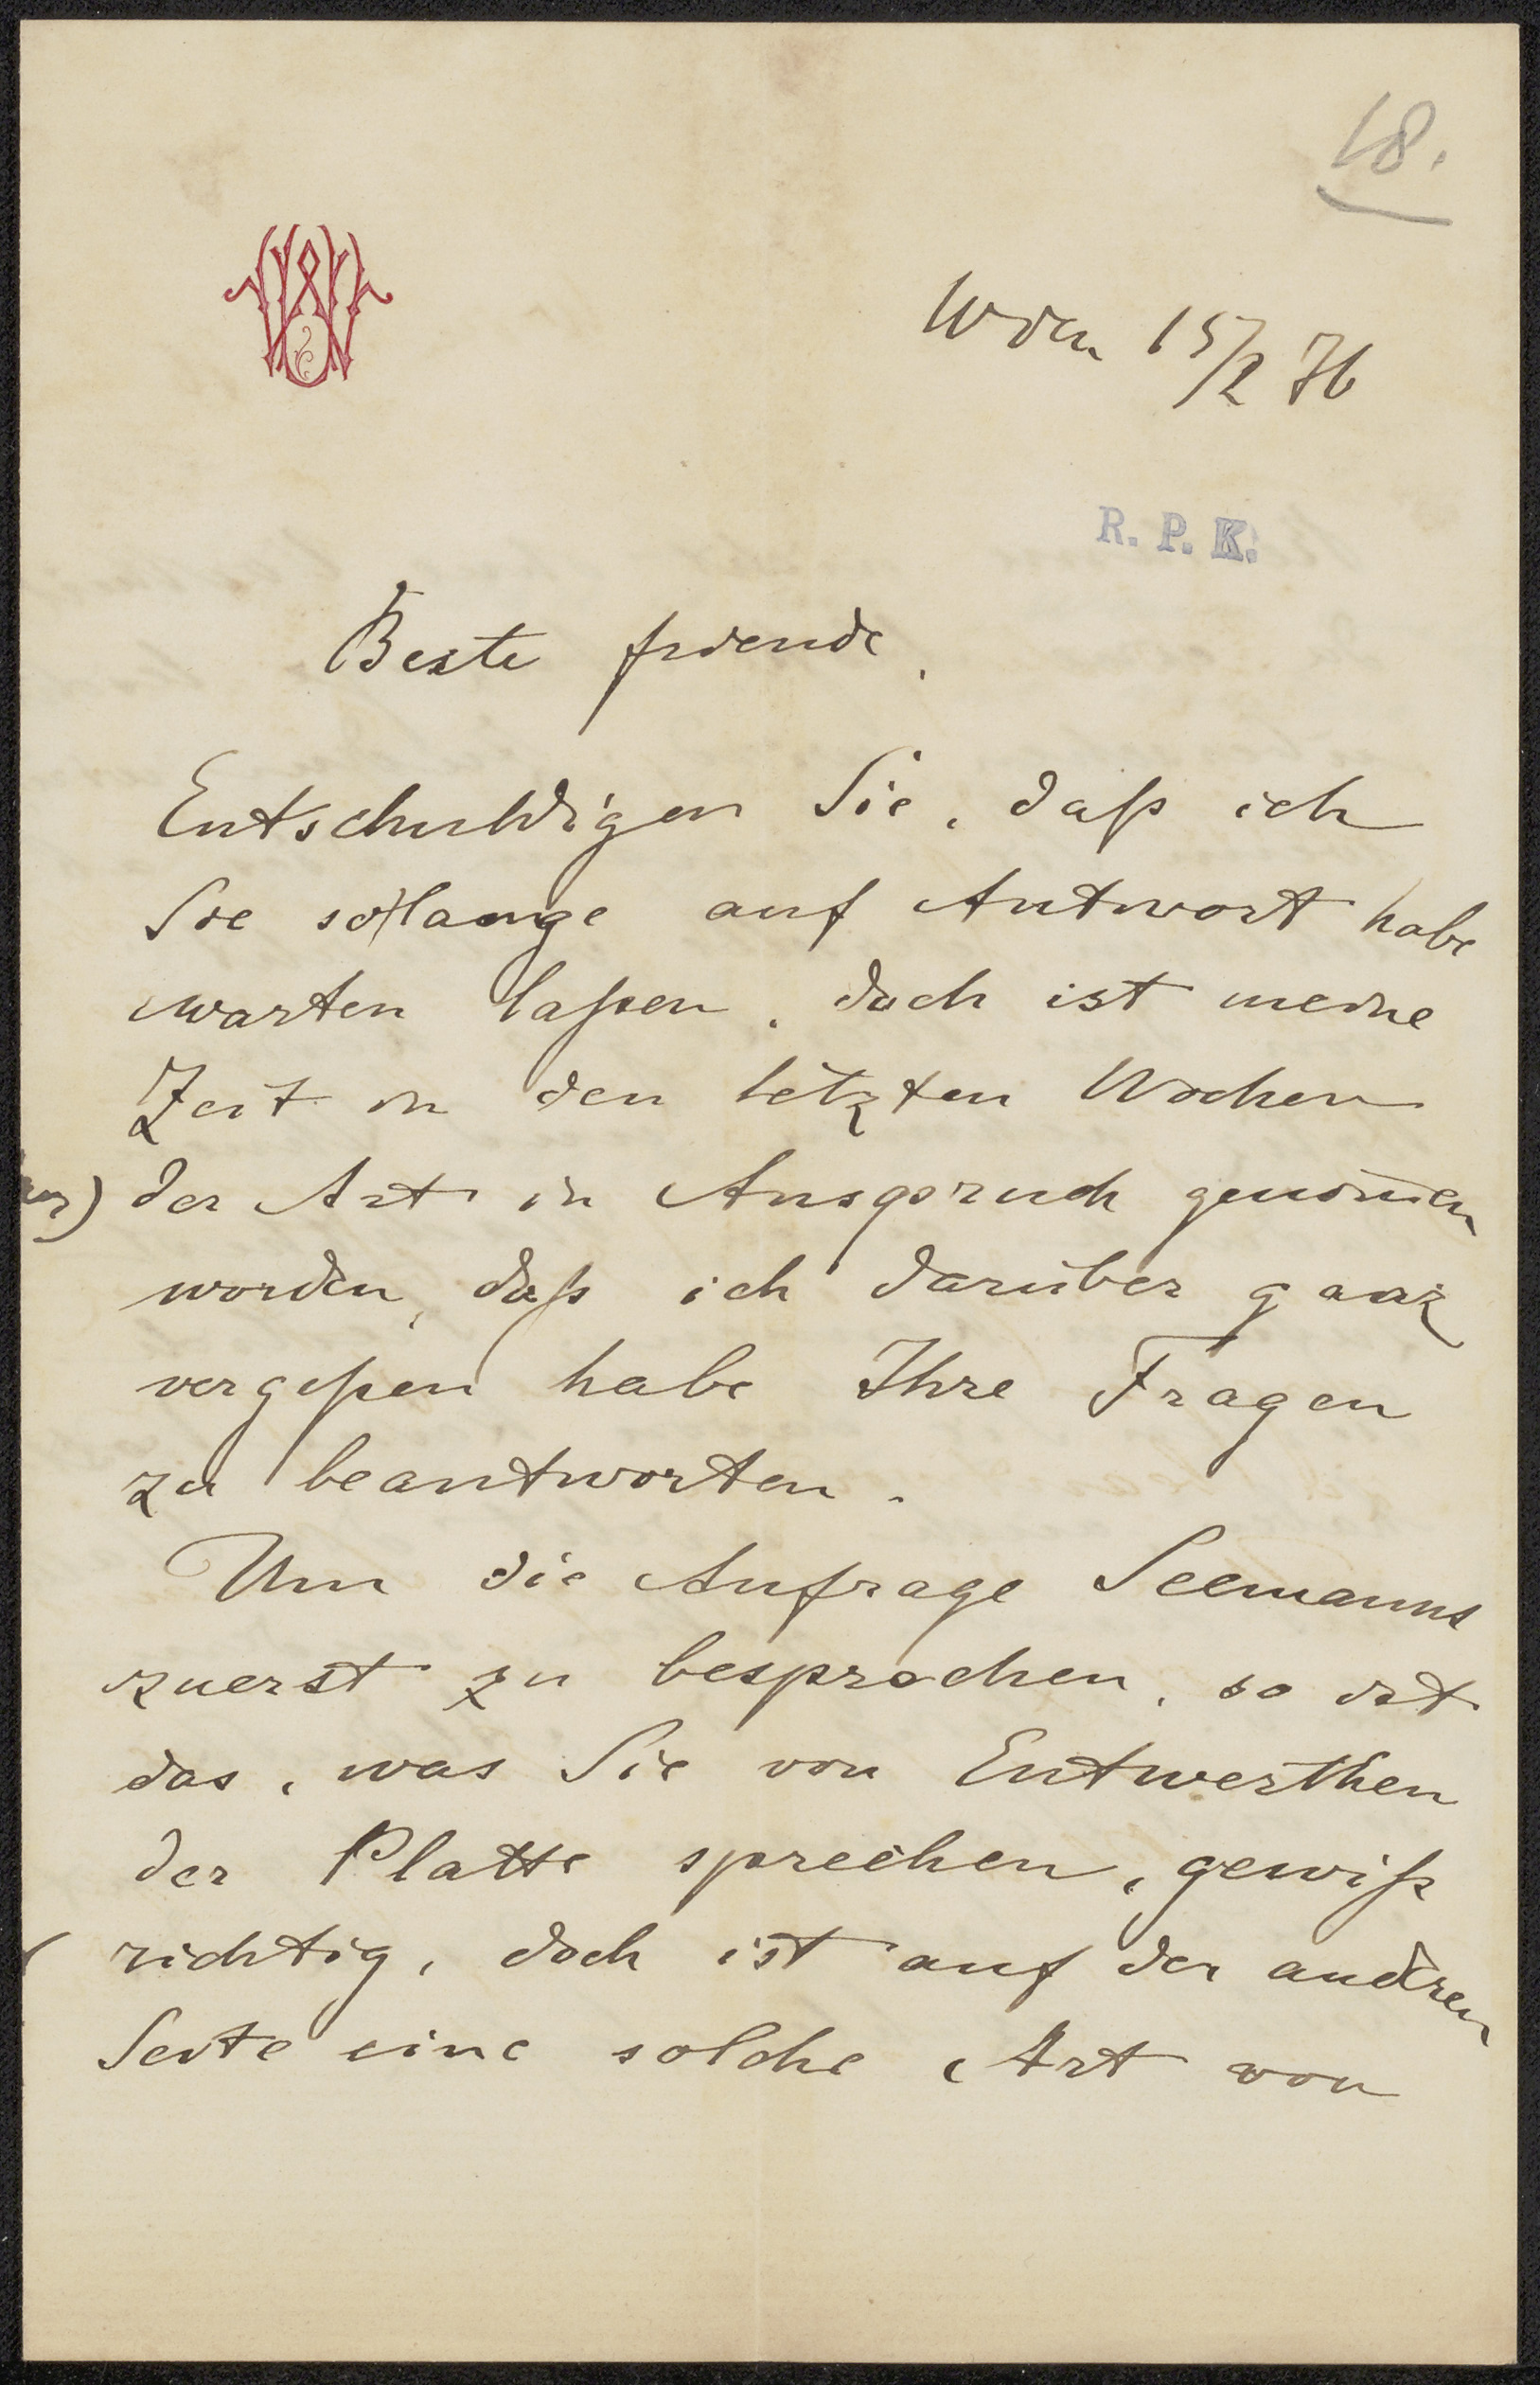 18.
Wien 15/2 76
R. P. K.
Beste friende,
Entschuldigen Sie, daß ich
Sie so lange auf Antwort habe
warten laßen, doch ist meine
Zeit in den letzten Wochen
der Art in Anspruch genom̄en
worden, daß ich darüber ganz
vergeßen habe Ihre Fragen
zu beantworten.
Um die Anfrage Seemanns
zuerst zu besprechen, so ist
das, was Sie von Entwerthen
der Platte sprechen, gewiß
richtig, doch ist auf der anderen
Seite eine solche Art von